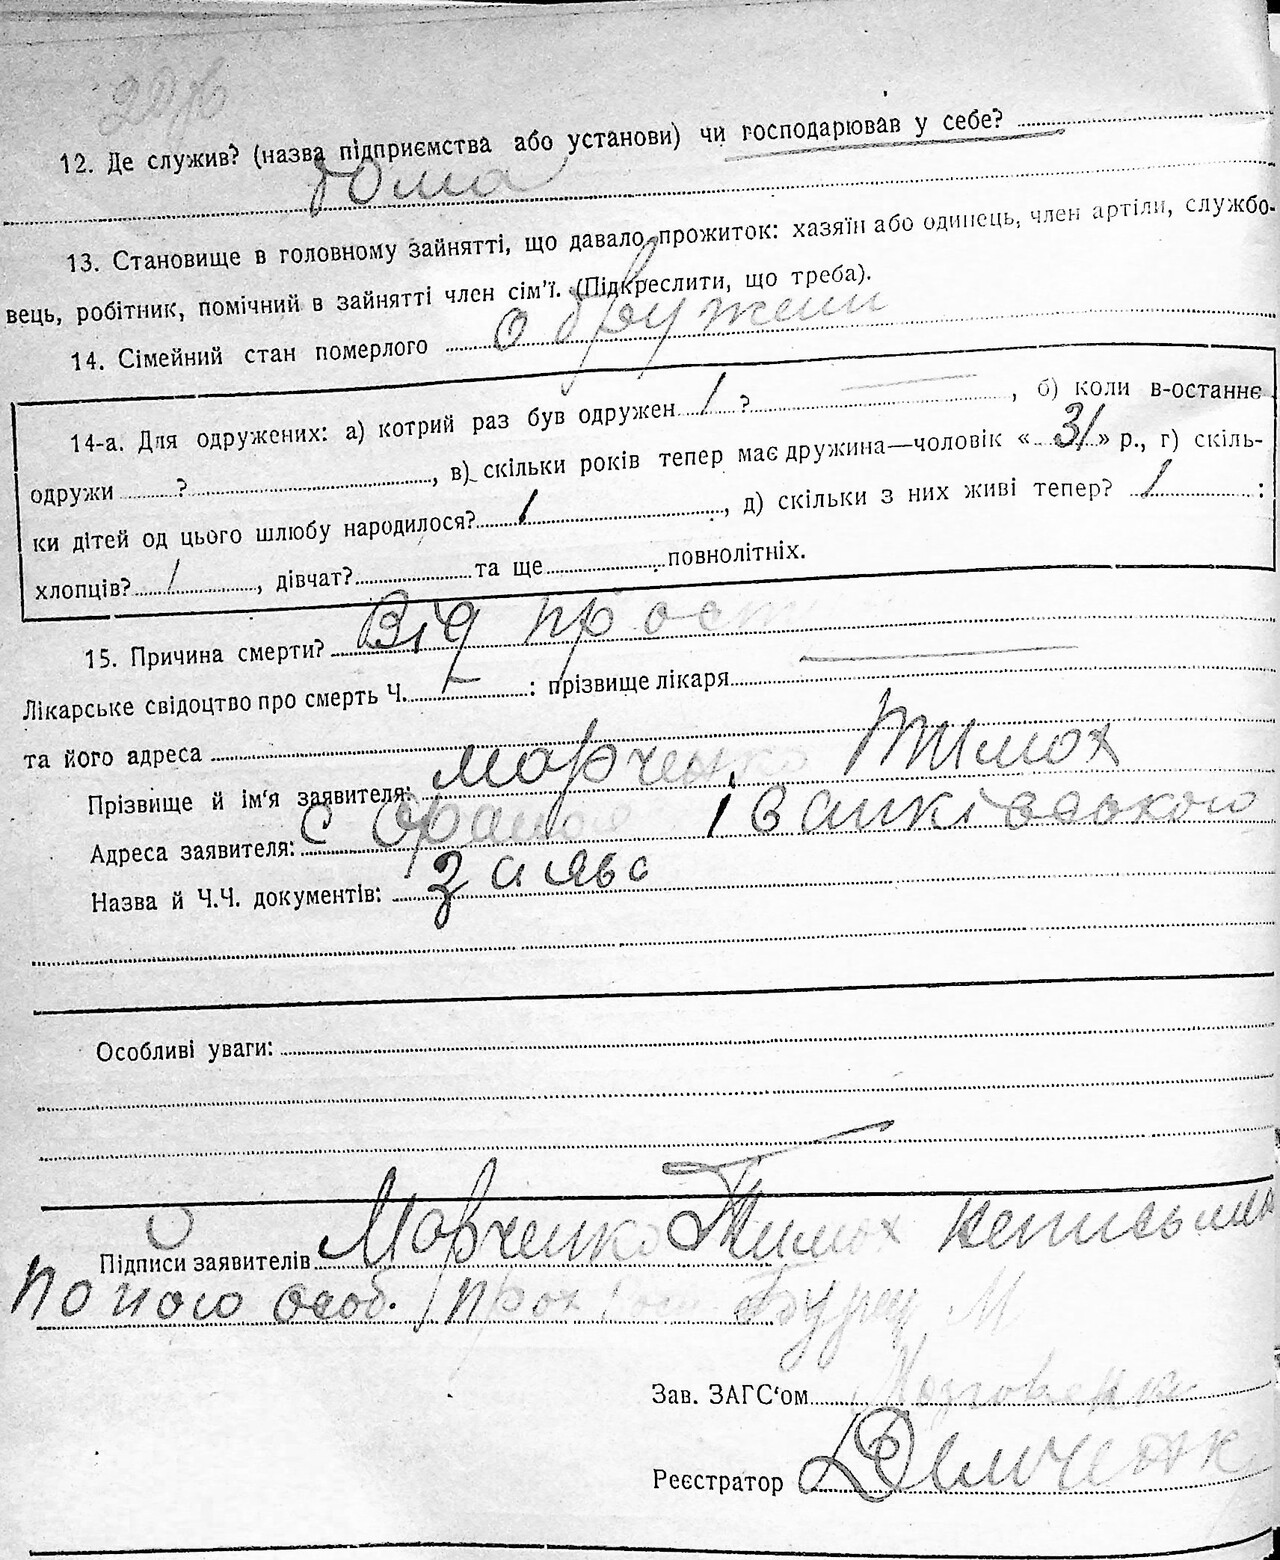 12. Де служив? (назва підприємства або установи) чи господарював у себе?
дома
13. Становище в головному зайнятті, що давало прожиток: хазяїн або одинець, член артіли, службо-
вець, робітник, помічний в зайнятті член сім'ї. (Підкреслити, що треба).
14. Сімейний стан померлого одружени
14-а. Для одружених: а) котрий раз був одружен 1 ? , б) коли в-останнє
одружи ? , в) скільки років тепер має дружина—чоловік « 31 » р., г) скіль-
ки дітей од цього шлюбу народилося? 1 , д) скільки з них живі тепер? 1 :
хлопців? 1 , дівчат? та ще повнолітніх.
15. Причина смерти? Від прост
Лікарське свідоцтво про смерть Ч. – : прізвище лікаря
та його адреса
Прізвище й ім'я заявителя: Марченко Тимох
Адреса заявителя: с Іванківського
Назва й Ч.Ч. документів: заява
Особливі уваги:
Підписи заявителів Марченко Тимох неписьмен
по його особ.
Зав. ЗАГС'ом
Реєстратор Демченк